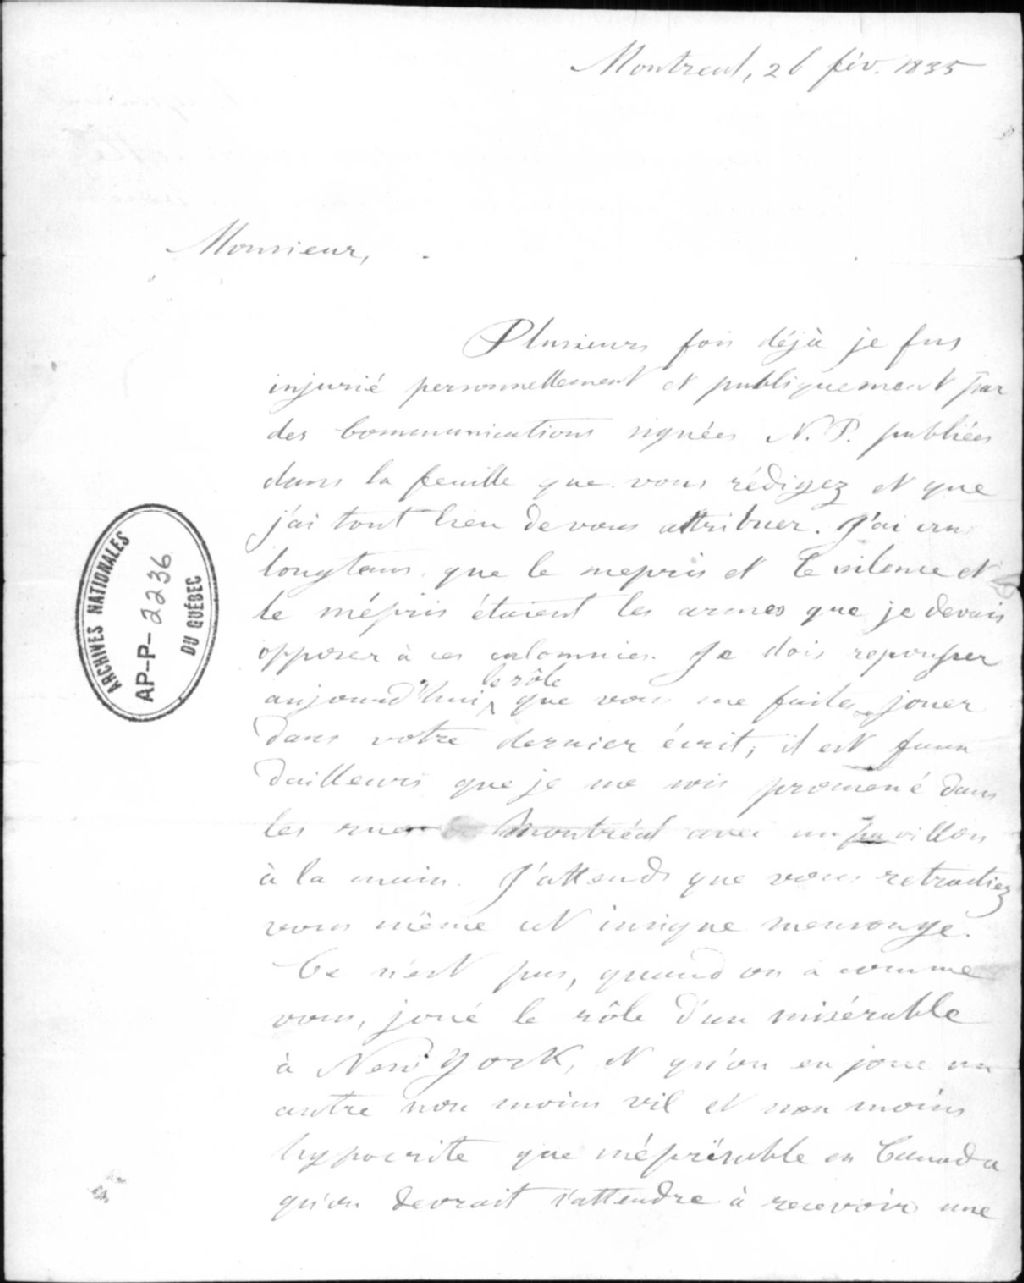 Montreal, 26 fév. 1835
Monsieur,
Plusieurs fois déjà je fus
injurié personnellement et publiquement par
des Communications signées N. P. publiées
dans la feuille que vous rédigez et que
j'ai tout lieu de vous attribuer. J'ai cru
longtems que le mepris et le silence et
le mépris étaient les armes que je devais
opposer à ces calomnies. Je dois repousser
le rôle
aujourd'hui que vous me faites jouer
dans votre dernier écrit; il est faux
d'ailleurs que je me sois promené dans
les rues Montréal avec un pavillon
à la main. J'attends que vous retractiez
vous même cet insigne mensonge.
Ce n'est pas, quand on a comme
vous, joué le rôle d'un misérable
à New York, et qu'on en joue un
autre non moins vil et non moins
hypocrite que méprisable en Canada
qu'on devrait s'attendre à recevoir une
ARCHIVES NATIONALES
DU QUÉBEC
AP-P-2236